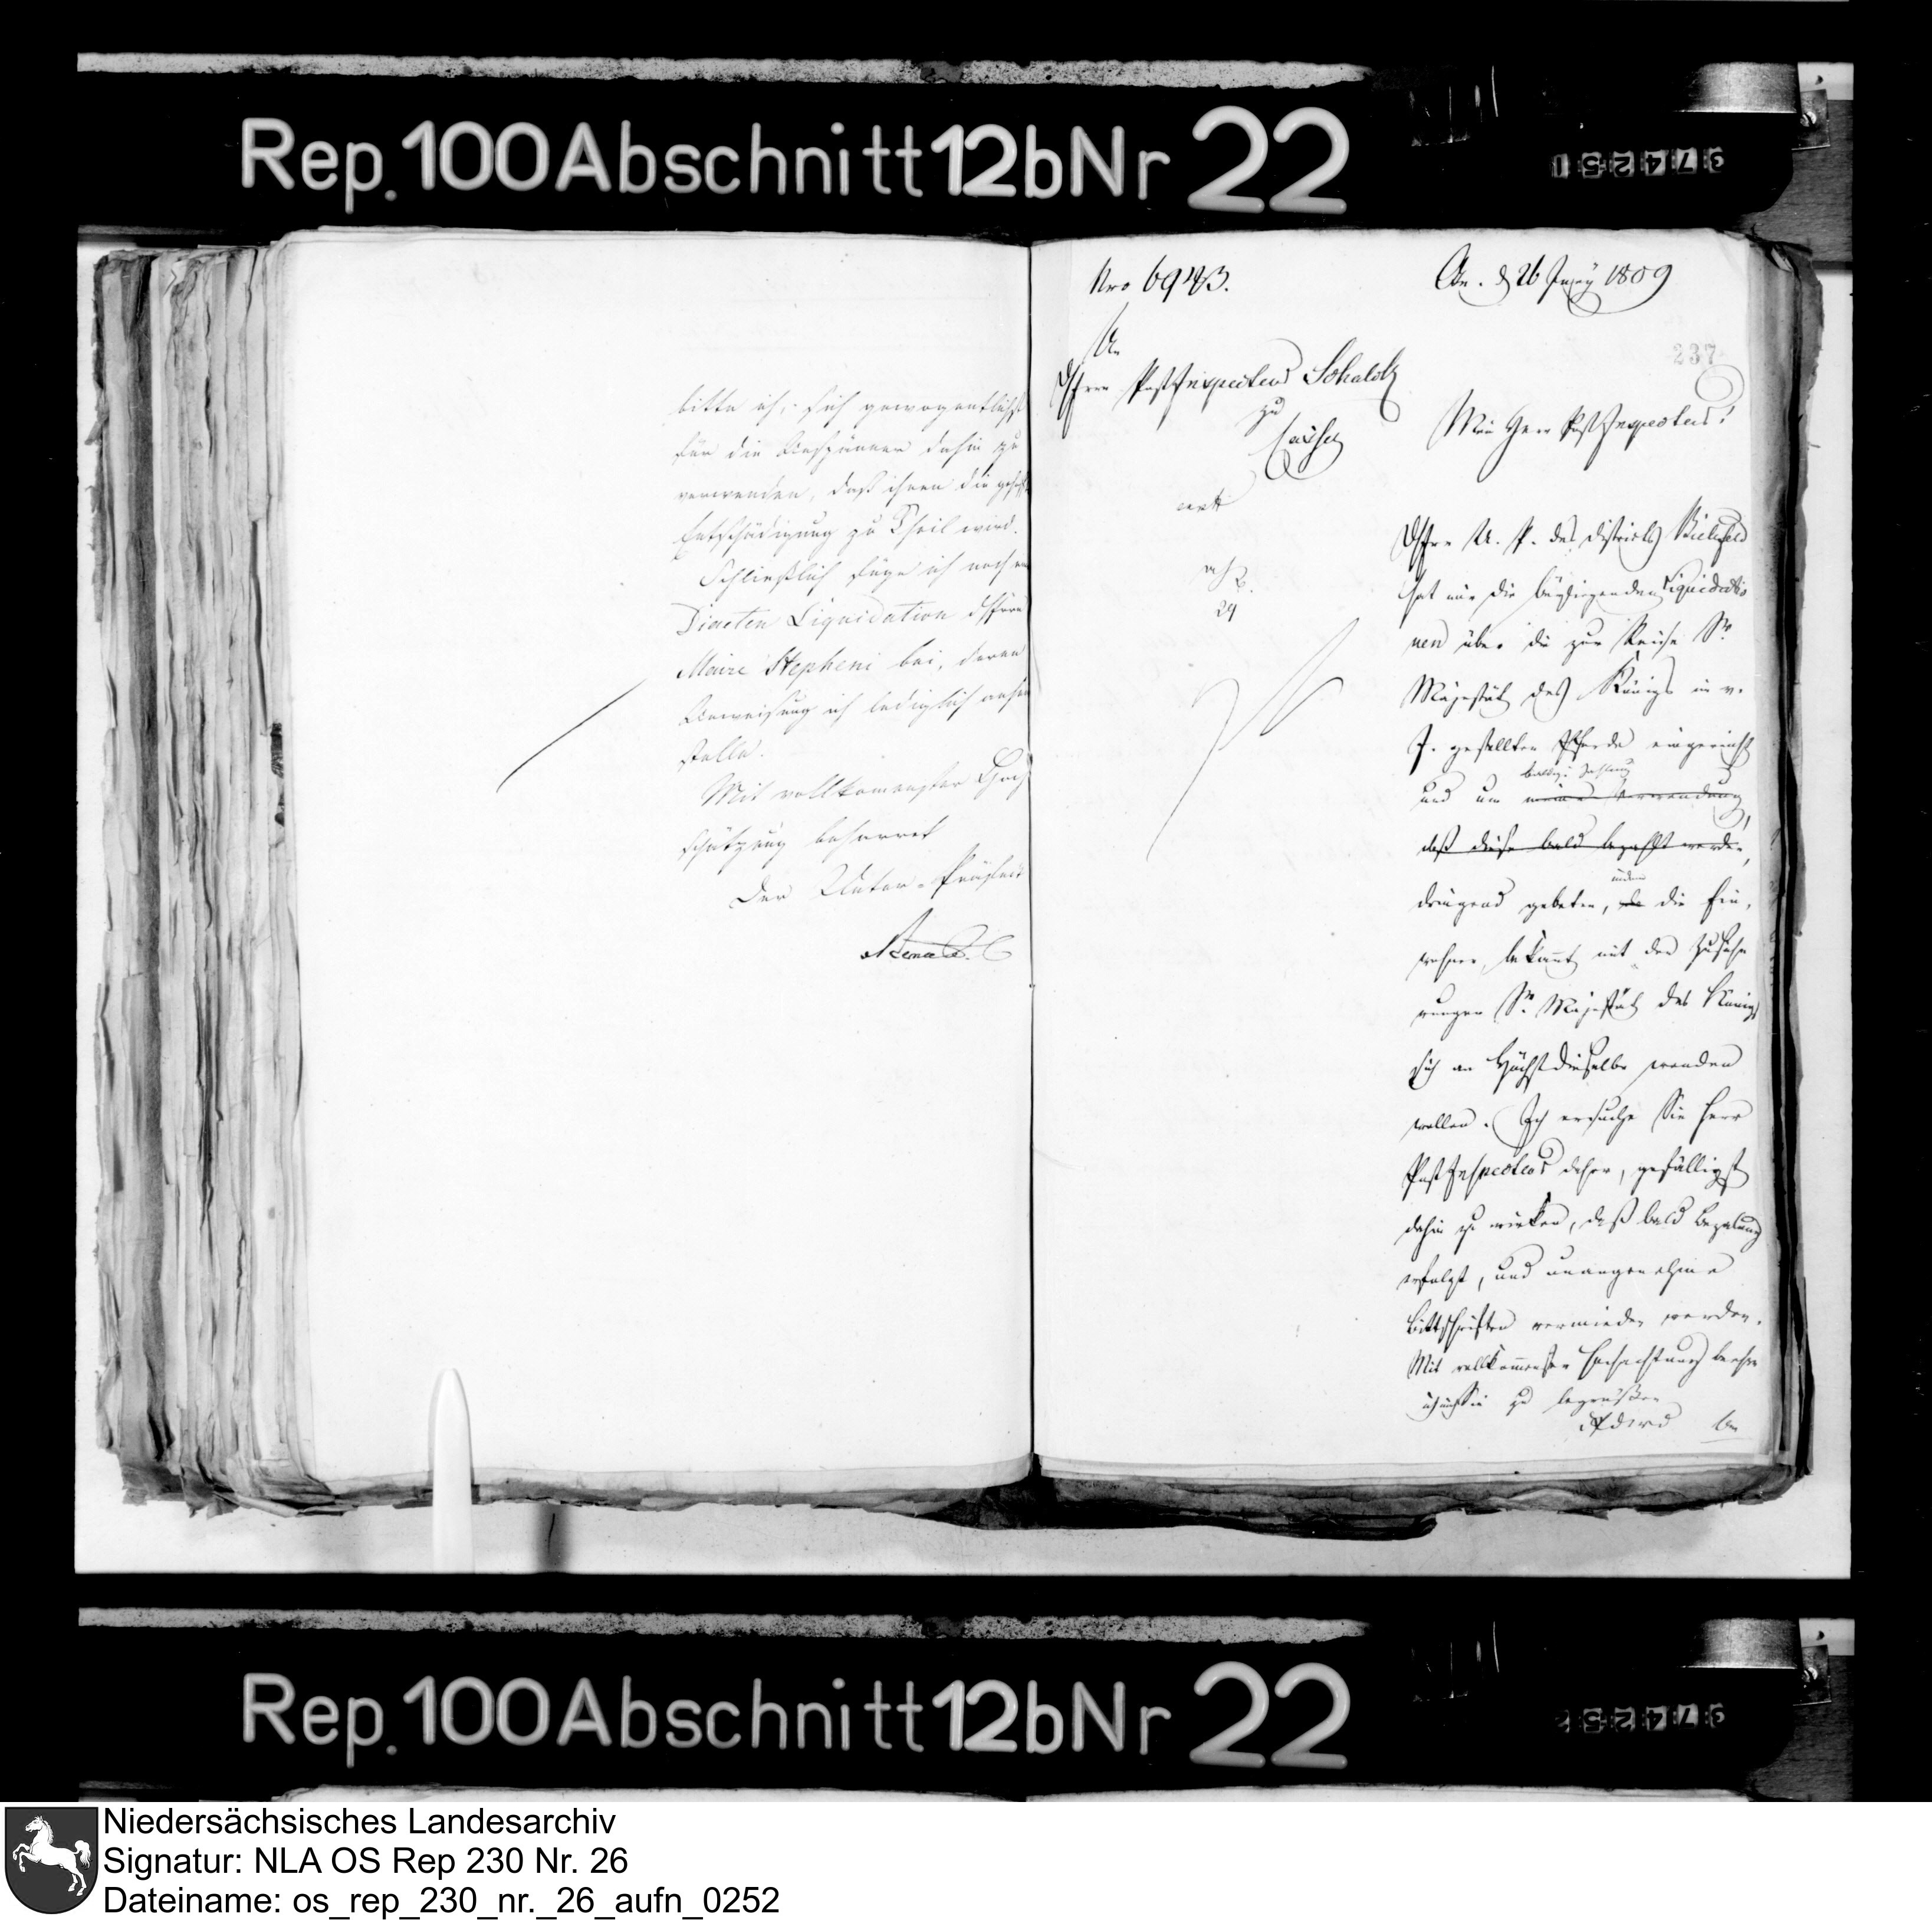 Rep. 100 Abschnitt 12b Nr 22
974251
bitte ich, sich gewogentlichst
für die Anspänner dahin zu
verwenden, daß ihnen die
Entschädigung zu Theil wird.
Schließlich füge ich noch
Diaeten Liquidation
Maire Stepheni bei, deren
Anweisung ich lediglich anheim
stelle.
Mit vollkomenster Hoch
schätzung beharret
Der Unter-Präfect
Nro 6943.
d 26 1809
237
An
PostInspecteur
zu
Cassel
24
Mein Herr PostInspecteur!
U. P. des Districts Bielefeld
hat mir die beyliegenden Liquidatio
nen über die zur Reise Sr.
Majestät des Königs in v.
J. gestellten Pferde eingereicht
baldige Zahlung
und um meine Verwendung,
daß diese bald bezahlt werden,
indem
dringend gebeten, da die Ein,
wohner, bekannt mit den Zusiche
rungen Sr. Majestät des Königs
sich an Höchstdieselbe wenden
wollen. Ich ersuche Sie Herr
PostInspecteur daher, gefälligst
dahin zu wirken, daß bald Bezalung
erfolgt, und unangenehme
Bittschriften vermieden werden.
Mit vollkommenster Hochachtung beehre
ich mich Sie zu begrüßen
Rep. 100 Abschnitt 12b Nr 22
974252
Niedersächsisches Landesarchiv
Signatur: NLA OS Rep 230 Nr. 26
Dateiname: os_rep_230_nr._26_aufn_0252